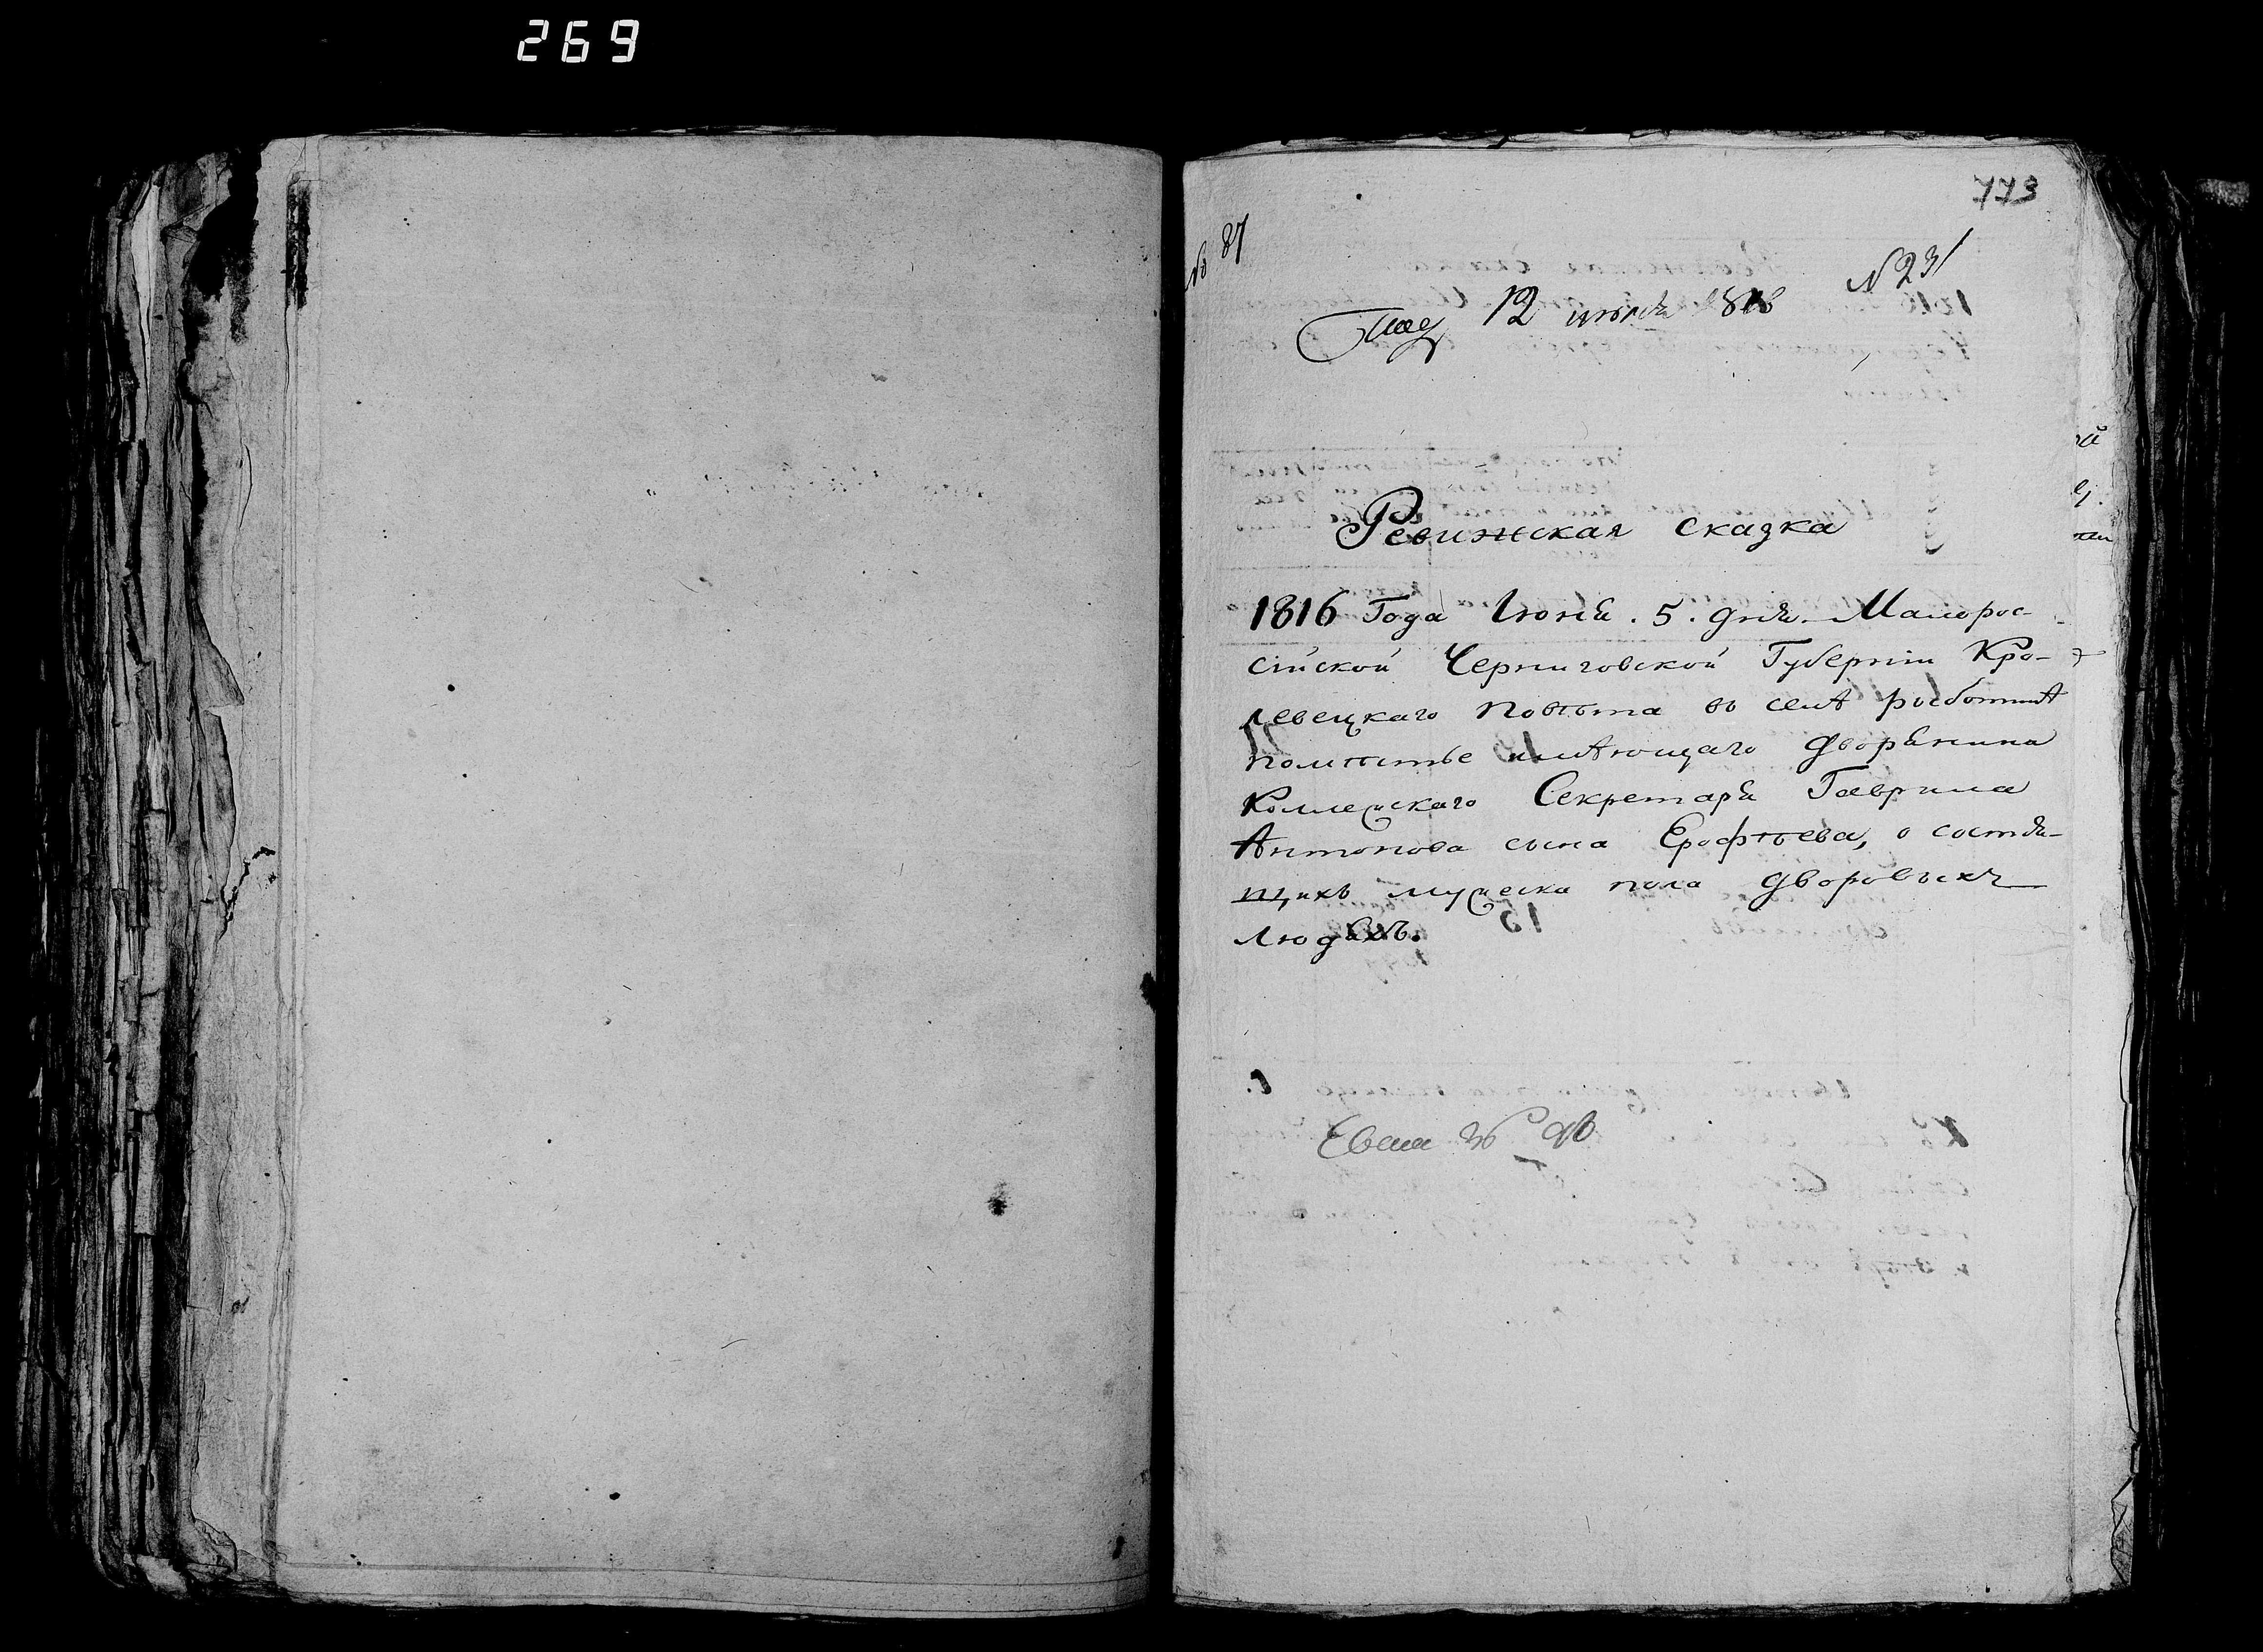 269
773
№ 87
№ 23
Под 12 июня 1816
Ревижская сказка
1816 Года Июня . 5 . дня. Малорос-
сійской Черниговской Губерніи Кро-
левецкаго повѣта въ селѣ
помѣстье имѣющаго дворянина
Коллежскаго Секретаря Гаврила
Антонова сына Ерофѣева, о состоя-
щихъ мужеска пола дворовыхъ
людяхъ.